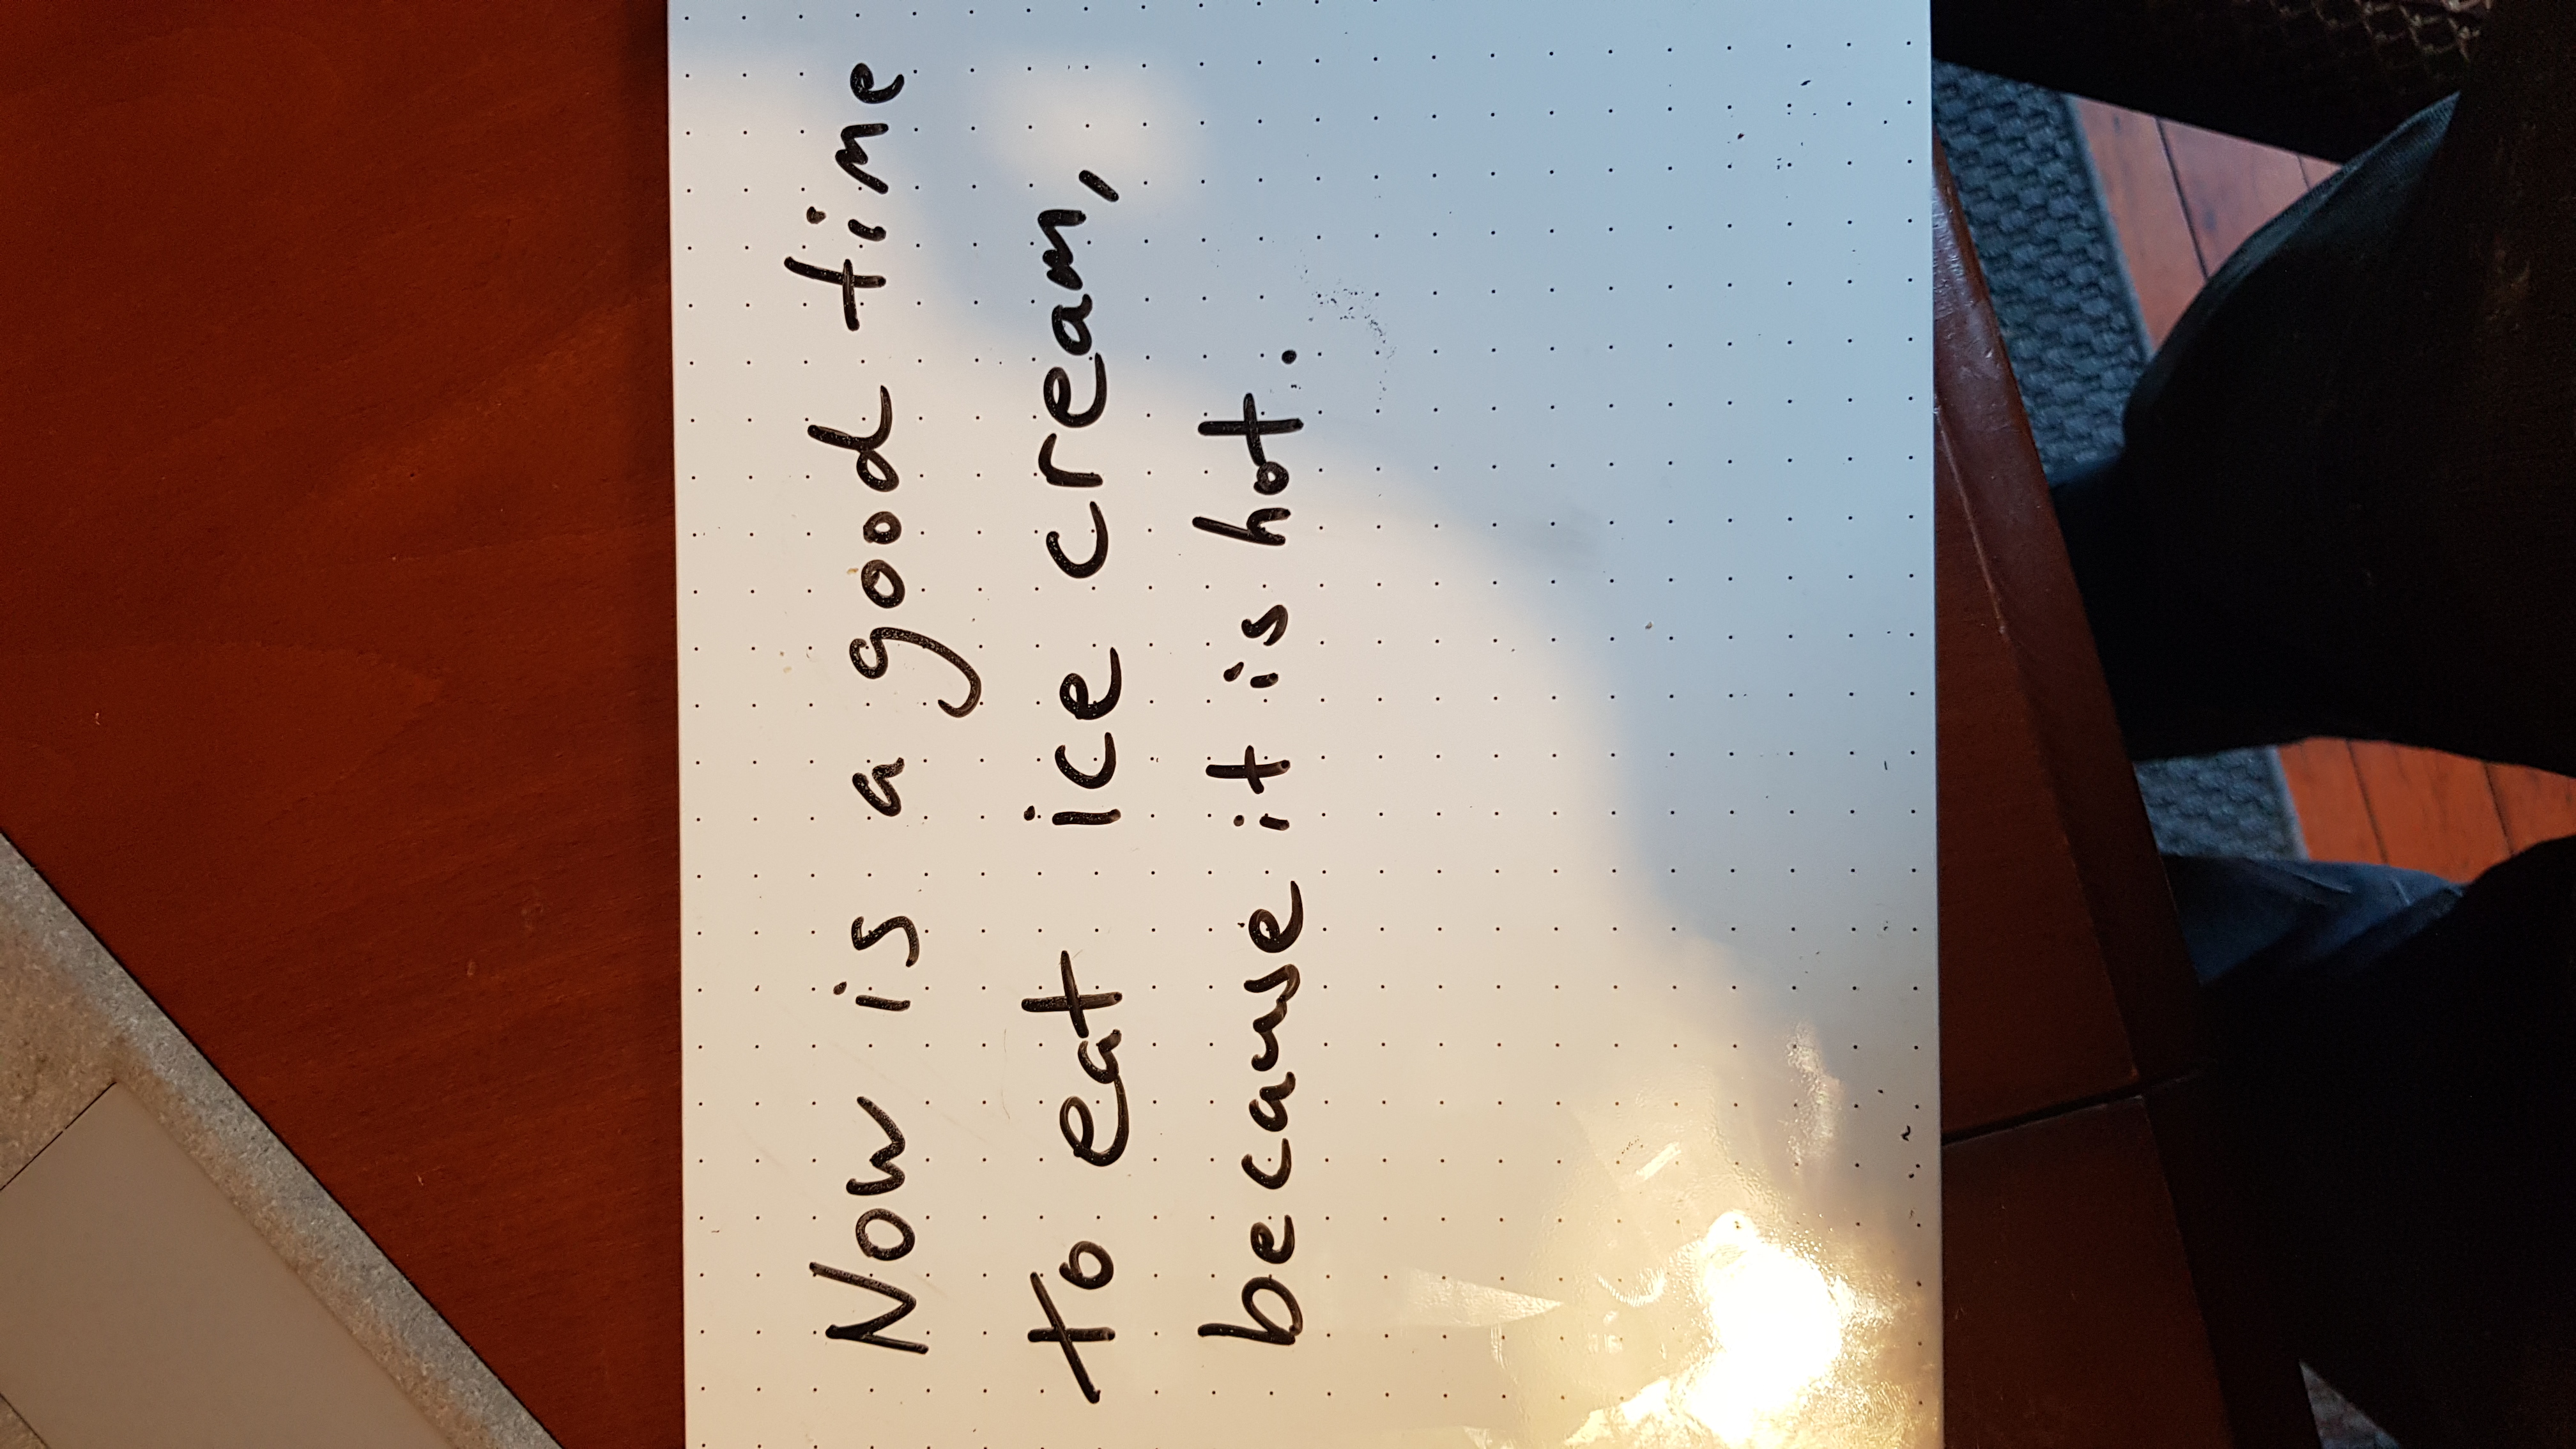 Now is a good time
to eat ice cream,
because it is hot.